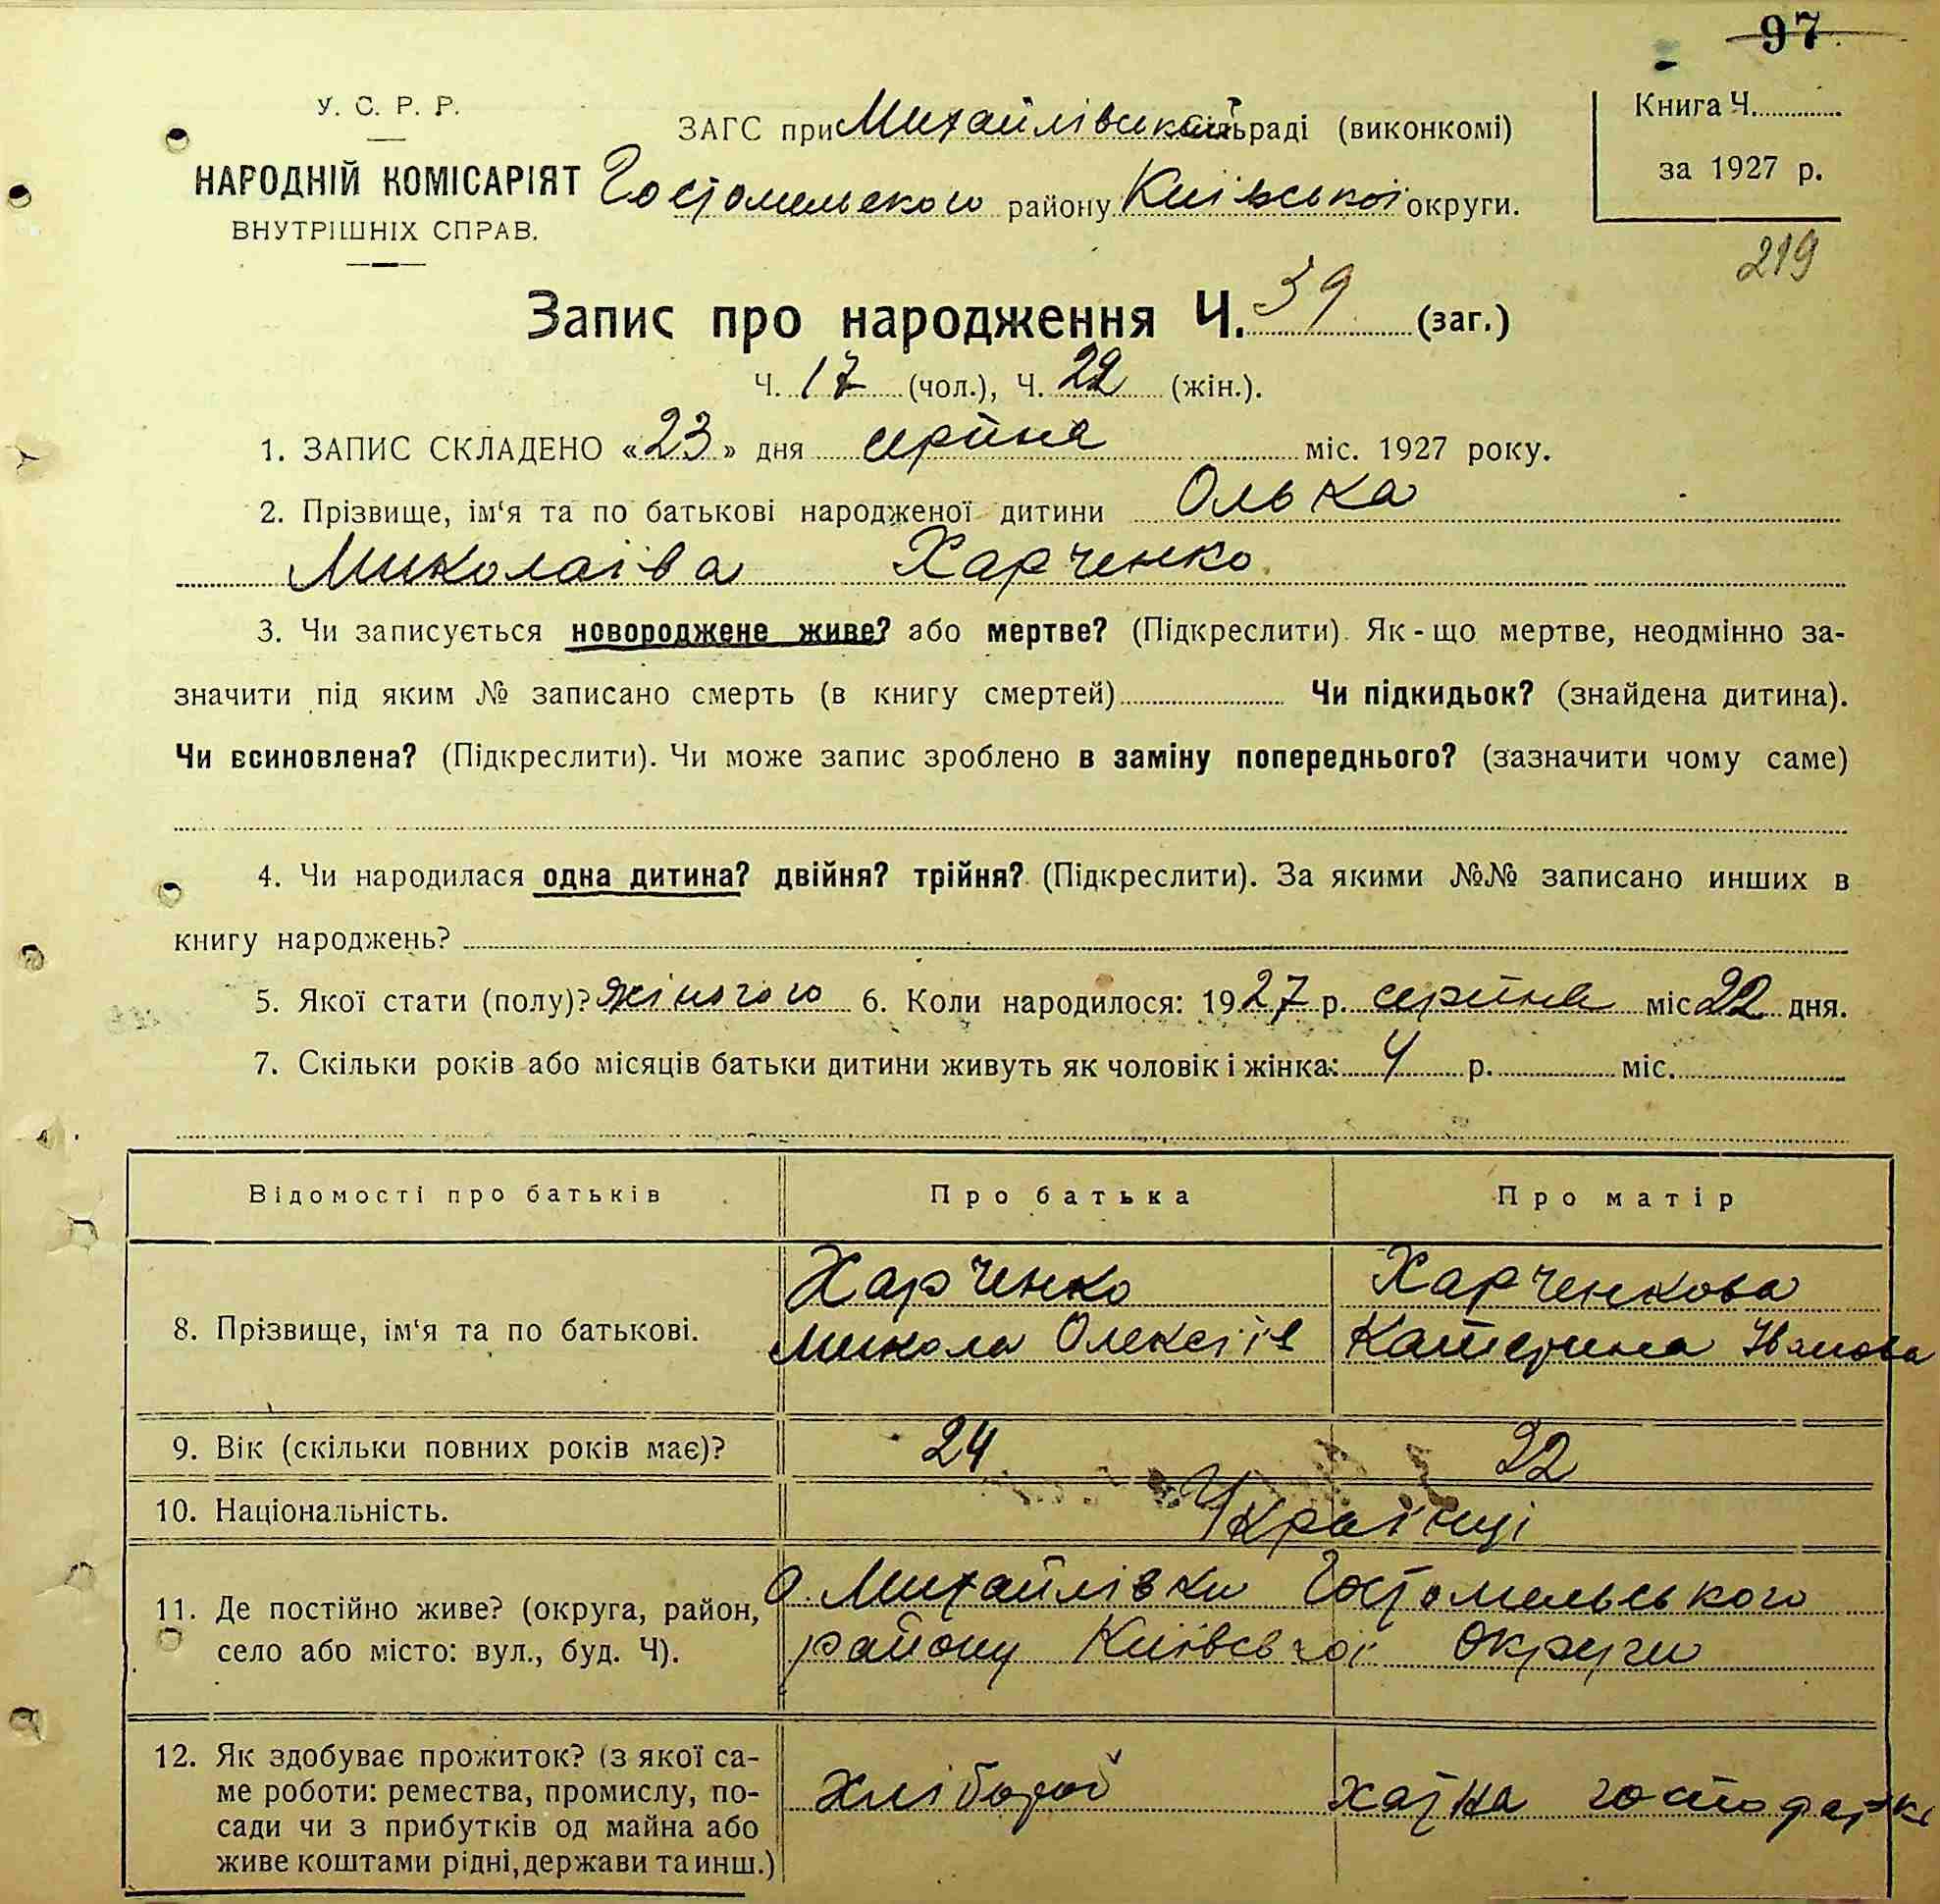 97
У. С. Р. Р.
НАРОДНІЙ КОМІСАРІЯТ
ВНУТРІШНІХ СПРАВ.
ЗАГС при Михайлівській сільраді (виконкомі)
Гостомельского району Київської округи.
Книга Ч.
за 1927 р.
219
Запис про народження Ч. 39 (заг.)
Ч. 17 (чол.), Ч. 22 (жін.).
1. ЗАПИС СКЛАДЕНО «23» дня серпня міс. 1927 року.
2. Прізвище, ім'я та по батькові народженої дитини Олька
Миколаіва Харченко
3. Чи записується новороджене живе? або мертве? (Підкреслити). Як-що мертве, неодмінно за-
значити під яким № записано смерть (в книгу смертей) Чи підкидьок? (знайдена дитина).
Чи всиновлена? (Підкреслити). Чи може запис зроблено в заміну попереднього? (зазначити чому саме)
4. Чи народилася одна дитина? двійня? трійня? (Підкреслити). За якими №№ записано инших в
книгу народжень?
5. Якої стати (полу)? жіночого 6. Коли народилося: 1927 р. серпня міс 22 дня.
7. Скільки років або місяців батьки дитини живуть як чоловік і жінка: 4 р. міс.
Відомості про батьків Про батька Про матір
8. Прізвище, ім'я та по батькові.
Харченко Харченкова
Микола Олексіїв Катерина Іванова
9. Вік (скільки повних років має)? 24 22
10. Національність. Українці
11. Де постійно живе? (округа, район,
село або місто: вул., буд. Ч).
с. Михайлівки Гостомельського
району Київської округи
12. Як здобуває прожиток? (з якої са-
ме роботи: ремества, промислу, по-
сади чи з прибутків од майна або
живе коштами рідні, держави та инш.)
хлібороб хатня господарка